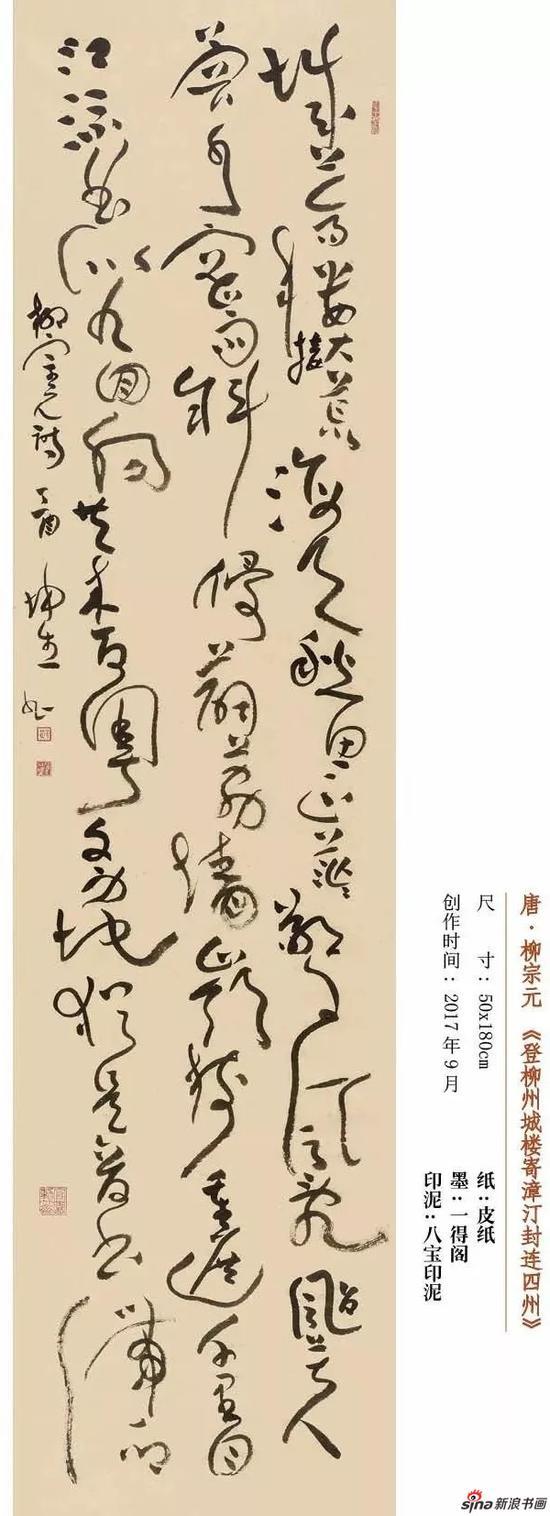 城上高樓接大荒海天愁思正茫茫驚風亂颭芙
蓉水密雨斜侵薜荔牆嶺樹重遮千里目
江流曲似九回腸共來百粵文身地猶是音書滯一鄉
柳宗元詩 丁酉
唐·柳宗元 《登柳州城楼寄漳汀封连四州》
尺 寸：50x180cm 纸：皮纸
创作时间：2017年9月 墨：一得阁
印泥：八宝印泥
sina新浪书画